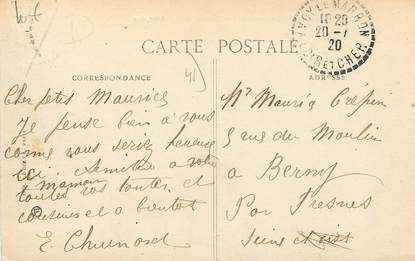 CARTE POSTALE
YVOY LE MARRON
10 20
20 - 7
20
LOIR ET CHER
41
CORRESPONDANCE
ADRESSE
Cher petis Maurice
Je pense bien a vous
come vous seriez heureux
ici. Amitiés a votre
maman
toutes vos tantes et
cousines et a bientot
E.
Mr Maurice Crépin
5 rue du Moulin
a Berny
Par Fresnes
Seine et